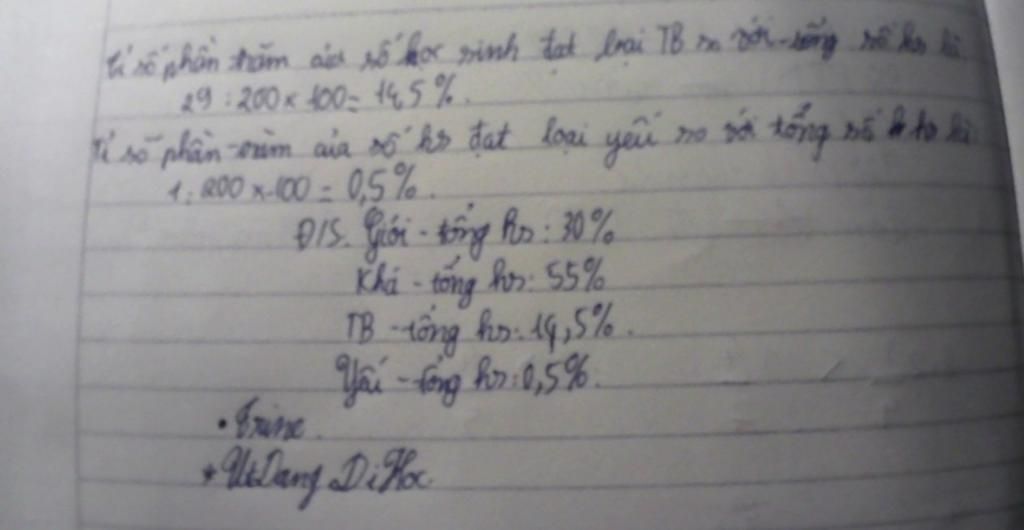 Tỉ số phần trăm của số học sinh đạt loại TB so với tổng số hs là
29 : 200 x 100 = 14,5%.
Tỉ số phần trăm của số hs đạt loại yếu so với tổng số hs là
1 : 200 x 100 = 0,5%.
Đ/S. Giỏi - tổng hs : 30%
Khá - tổng hs : 55%
TB - tổng hs : 14,5%.
Yếu - tổng hs : 0,5%.